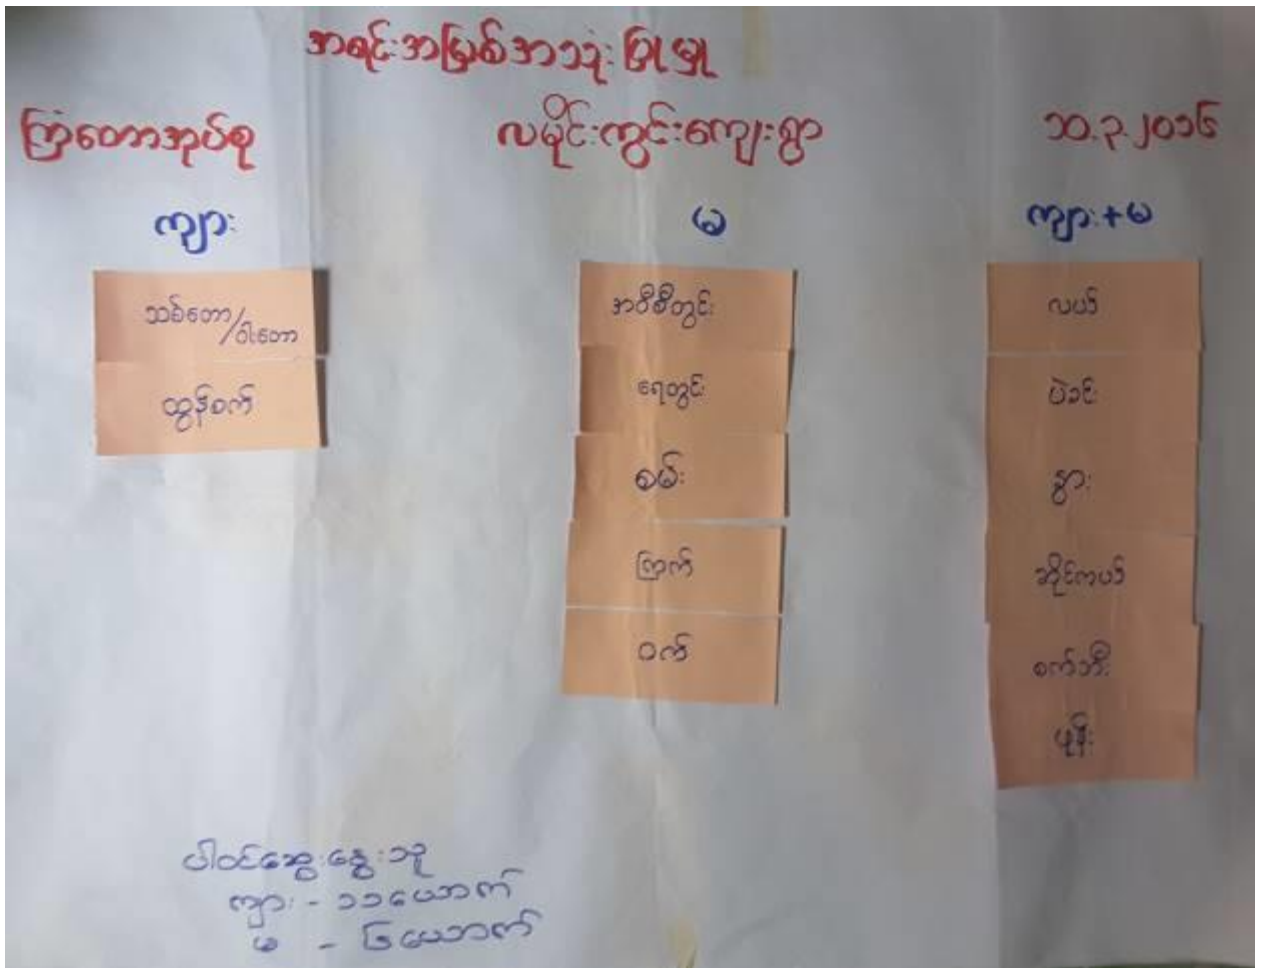 အရင်းအမြစ်အသုံးပြုမှု
ကြံတောအုပ်စု လမိုင်းကွင်းကျေးရွာ ၁၀.၃.၂၀၁၆
ကျား မ ကျား+မ
သစ်တော/ဝါးတော
ထွန်စက်
အဝီစိတွင်း
ရေတွင်း
စမ်း
ကြက်
ဝက်
လယ်
ပဲခင်း
နွား
ဆိုင်ကယ်
စက်ဘီး
ဖုန်း
ပါဝင်ဆွေးနွေးသူ
ကျား - ၁၁ယောက်
မ - ၆ယောက်